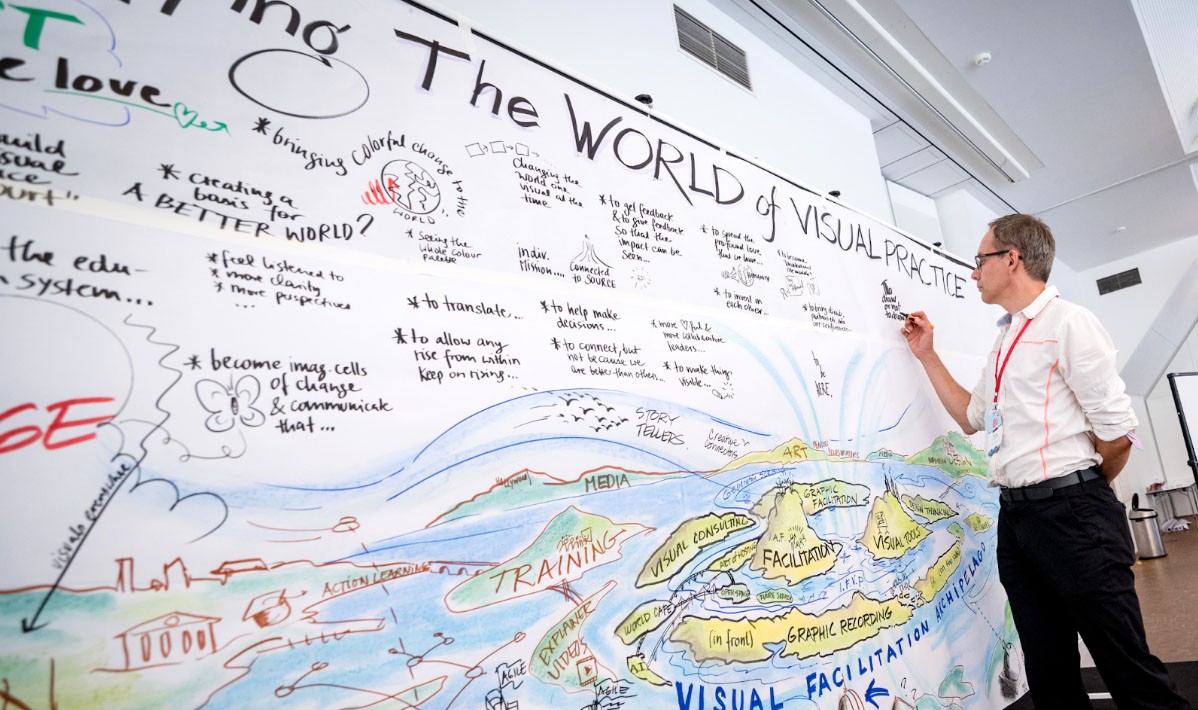 The WORLD of VISUAL PRACTICE
love
* bringing colorful change to the
WORLD
* creating a
basis for
A BETTER WORLD?
* seeing the
whole colour
palette
changing the
world one
visual at the
time
indiv.
Mission....
connected
to SOURCE
* to get feedback
& to give feedback
so that the
impact can be
seen...
* to spread the
profound love
that we have
* to invest in
each other...
the edu-
system...
* feel listened to
* more clarity
* more perspectives
...
* to translate...
* to allow any
rise from within
keep on rising...
* to help make
decisions...
* to connect, but
not because we
are better than others...
* more ful &
more collaborative
leaders...
* to make things
visible...
to
be
HERE,
* become imag. cells
of change
& communicate
that...
STORY
TELLERS
Creative
Connectors
HOLLYWOOD
MEDIA
ART
GRAPHIC
FACILITATION
DESIGN THINKING
VISUAL CONSULTING
VISUAL TOOLS
I.A.F.
FACILITATION
ART of HOSTING
OPEN SPACE
FUTURE SEARCH
I.F.V.P
WORLD CAFE
(in front) GRAPHIC RECORDING
A.I
TRAINING
ACTION LEARNING
EXPLAINER
VIDEOS
AGILE
AGILE
VISUAL FACILITATION ARCHIPELAGO